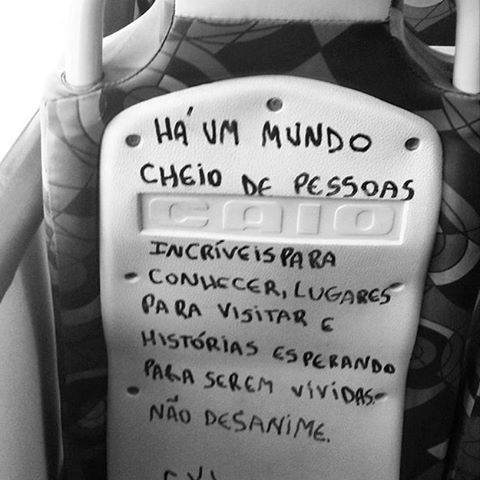 HÁ UM MUNDO
CHEIO DE PESSOAS
CAIO
INCRÍVEIS PARA
CONHECER, LUGARES
PARA VISITAR E
HISTÓRIAS ESPERANDO
PARA SEREM VÍVIDAS.
NÃO DESANIME.